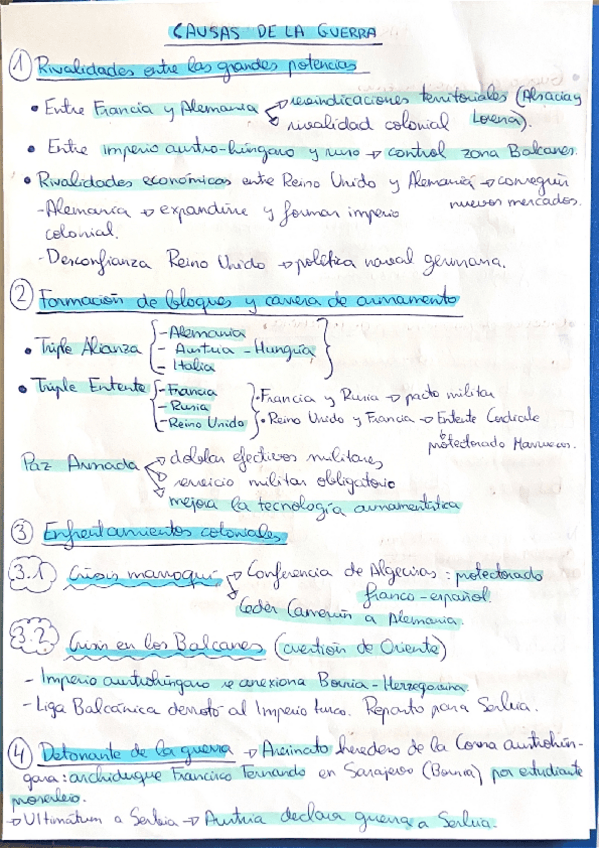 CAUSAS DE LA GUERRA
① Rivalidades entre las grandes potencias
• Entre Francia y Alemania → reivindicaciones territoriales (Alsacia y Lorena).
→ rivalidad colonial
• Entre imperio austro-húngaro y ruso → control zona Balcanes.
• Rivalidades económicas entre Reino Unido y Alemania → conseguir nuevos mercados.
- Alemania → expandirse y formar imperio
colonial.
- Desconfianza Reino Unido → política naval germana.
② Formación de bloques y carrera de armamento
• Triple Alianza { - Alemania
- Austria - Hungría
- Italia }
• Triple Entente { - Francia
- Rusia
- Reino Unido }
• Francia y Rusia → pacto militar
• Reino Unido y Francia → Entente Cordiale
↳ protectorado Marruecos.
Paz Armada → doblar efectivos militares
→ servicio militar obligatorio
→ mejora la tecnología armamentística
③ Enfrentamientos coloniales
3.1) Crisis marroquí → Conferencia de Algeciras: protectorado
franco-español.
→ Ceder Camerún a Alemania.
3.2) Crisis en los Balcanes (cuestión de Oriente)
- Imperio austrohúngaro se anexiona Bosnia-Herzegovina.
- Liga Balcánica derrotó al Imperio turco. Reparto para Serbia.
④ Detonante de la guerra → Asesinato heredero de la Corona austrohún-
gara: archiduque Francisco Fernando en Sarajevo (Bosnia) por estudiante
proserbio.
→ Ultimátum a Serbia → Austria declara guerra a Serbia.